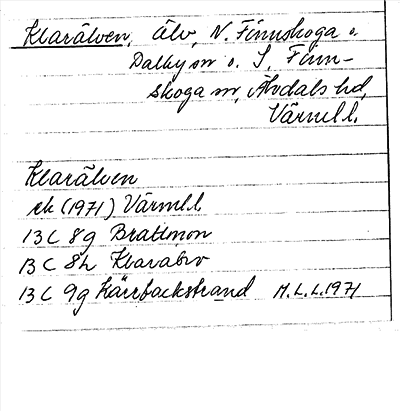 Klarälven, älv, N. Finnskoga o.
Dalby sn o. S. Finn-
skoga sn, Älvdals hd,
Värml l.
Klarälven
ek (1971) Värml. l
13 C 8g Brattmon
13 C 8h Klarabro
13 C 9g Kärrbackstrand M.L.L. 1971